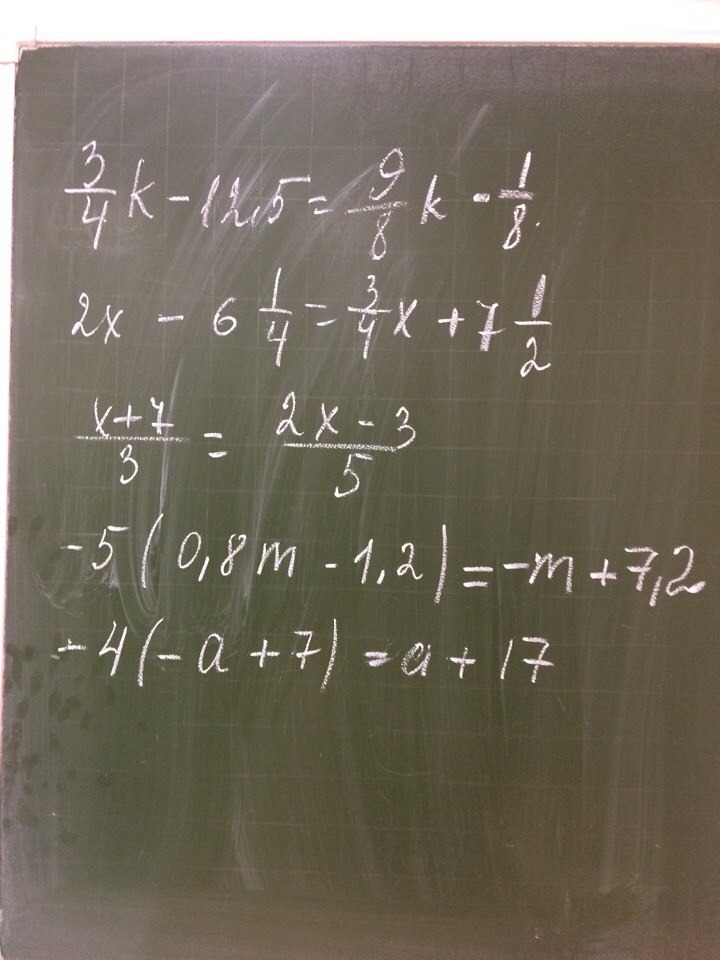 3/4 k - 12,5 = 9/8 k - 1/8.
2x - 6 1/4 = 3/4 x + 7 1/2
x+7/3 = 2x-3/5
-5(0,8m - 1,2) = -m + 7,2
-4(-a + 7) = a + 17